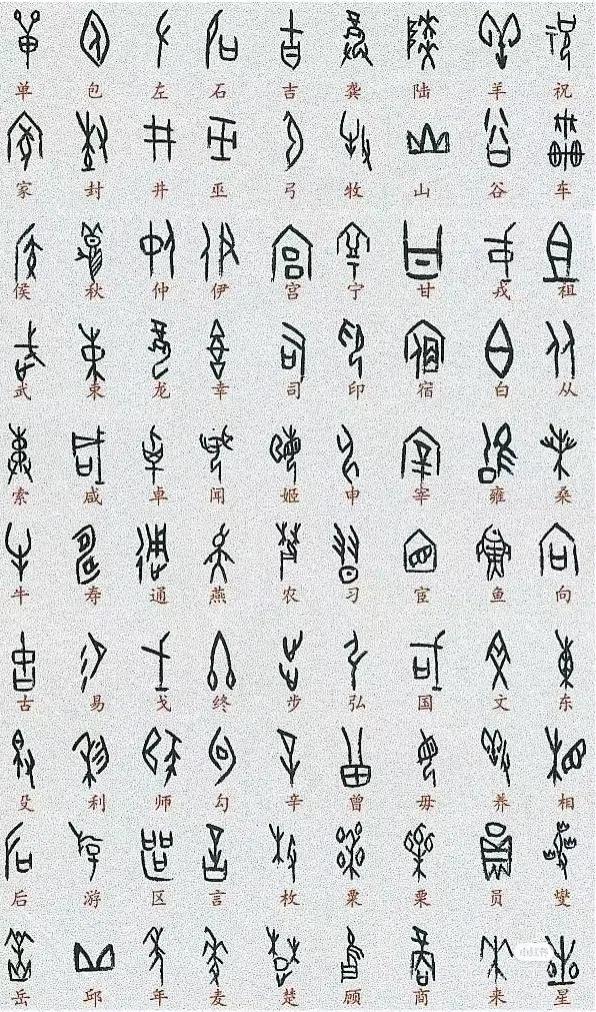 单 包 左 石 吉 龚 陆 羊 祝
家 封 井 巫 弓 牧 山 谷 车
侯 秋 仲 伊 宫 宁 甘 戎 祖
武 束 龙 幸 司 印 宿 白 从
索 咸 卓 闻 姬 申 宰 雍 桑
牛 寿 通 燕 农 习 宦 鱼 向
古 易 戈 终 步 弘 国 文 东
殳 利 师 勾 辛 曾 毋 养 相
后 游 区 言 枚 粟 栗 员 燮
岳 邱 年 麦 楚 顾 商 来 星
小红书